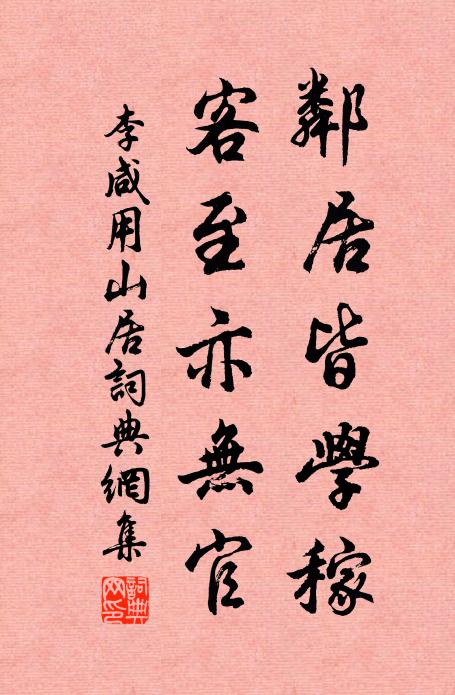 鄰居皆學稼
客至亦無官
李咸用山居詞典網集
詞典網印